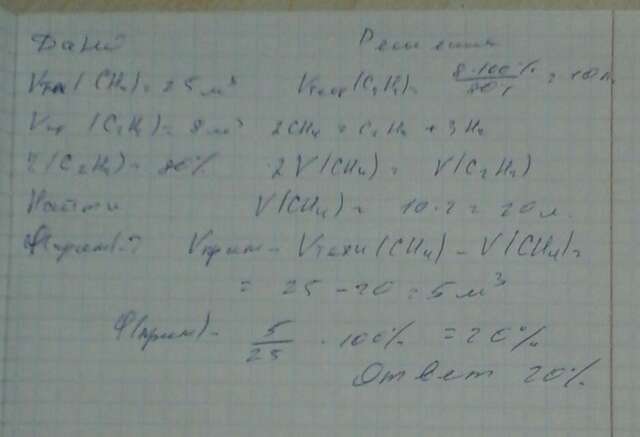 Дано Решение
Vтех(CH4) = 25 м³ Vтеор(C2H2) = 8·100% / 80% = 10 м
Vпр (C2H2) = 8 м³ 2CH4 = C2H2 + 3H2
η(C2H2) = 80% 2V(CH4) = V(C2H2)
Найти V(CH4) = 10·2 = 20 л.
φ(прим)-? Vприм = Vтехн(CH4) - V(CH4) =
= 25 - 20 = 5 м³
φ(прим) - 5/25 · 100% = 20%
Ответ 20%